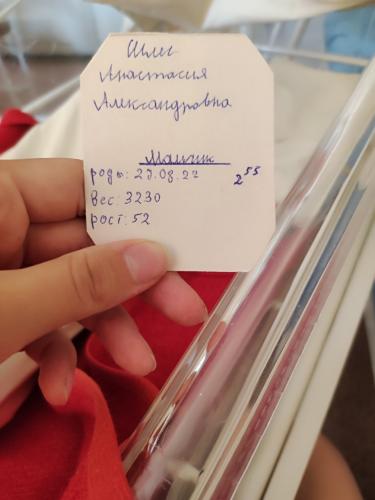 Шлег
Анастасия
Александровна
Мальчик
роды: 27.08.22 2⁵⁵
Вес: 3230
рост: 52